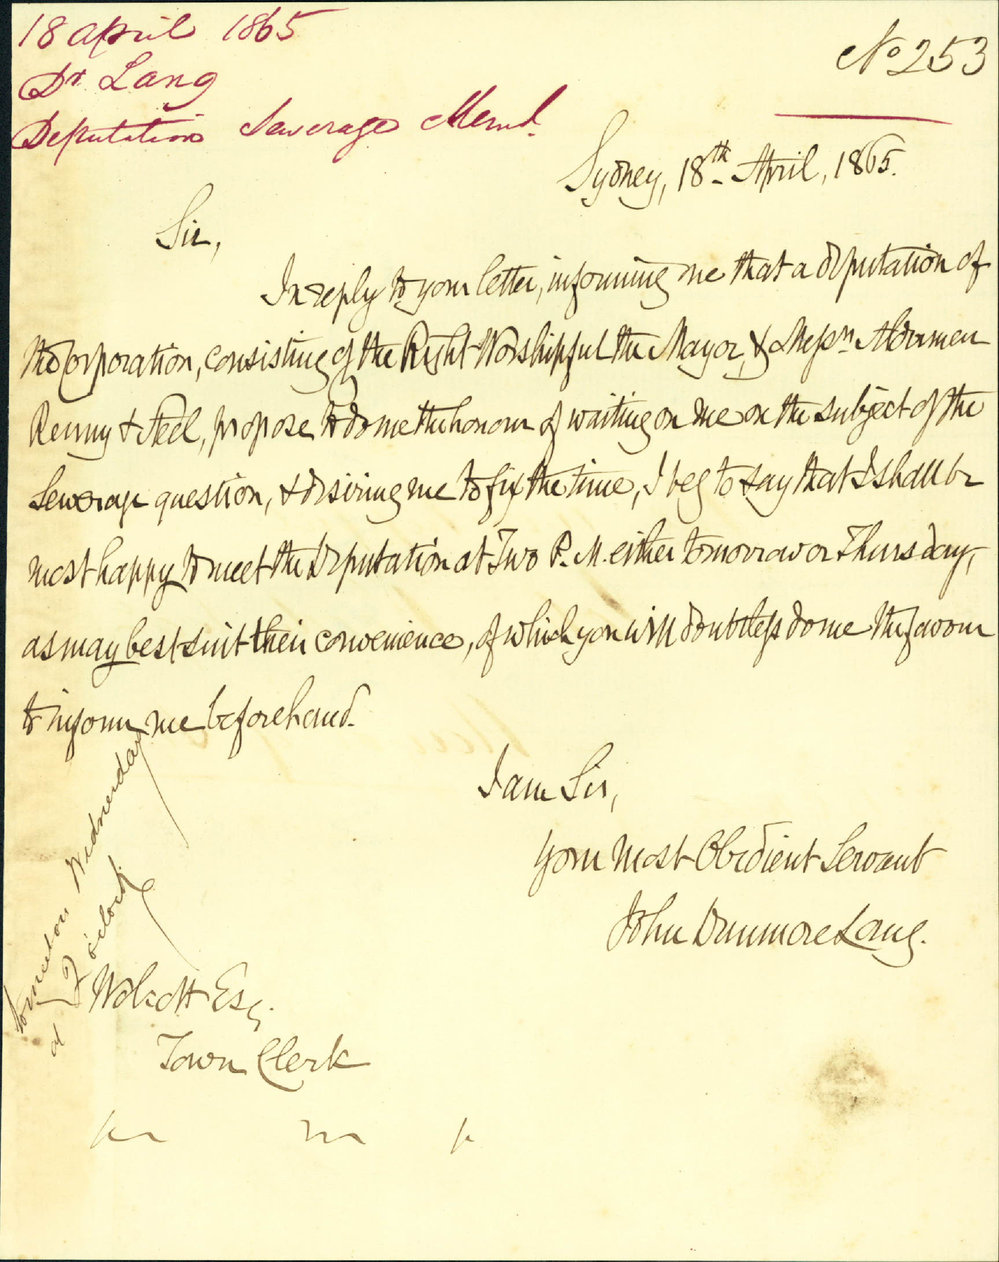 18 April 1865
Dr. Lang
Deputation Sewerage Memd.
No 253
Sydney, 18th April, 1865.
Sir,
In reply to your letter, informing me that a deputation of
the Corporation, consisting of the Right Worshipful the Mayor, & Messrs Aldermen
Renny & Neel, propose to do me the honour of waiting on me on the subject of the
Sewerage question, & desiring me to fix the time, I beg to say that I shall be
most happy to meet the Deputation at Two P.M. either tomorrow or Thursday,
as may best suit their convenience, of which you will doubtless do me the favour
to inform me beforehand.
I am Sir,
Your most Obedient Servant
John Dunmore Lang.
Wolcott Esq.
Town Clerk
tomorrow Wednesday
at 2 o'clock